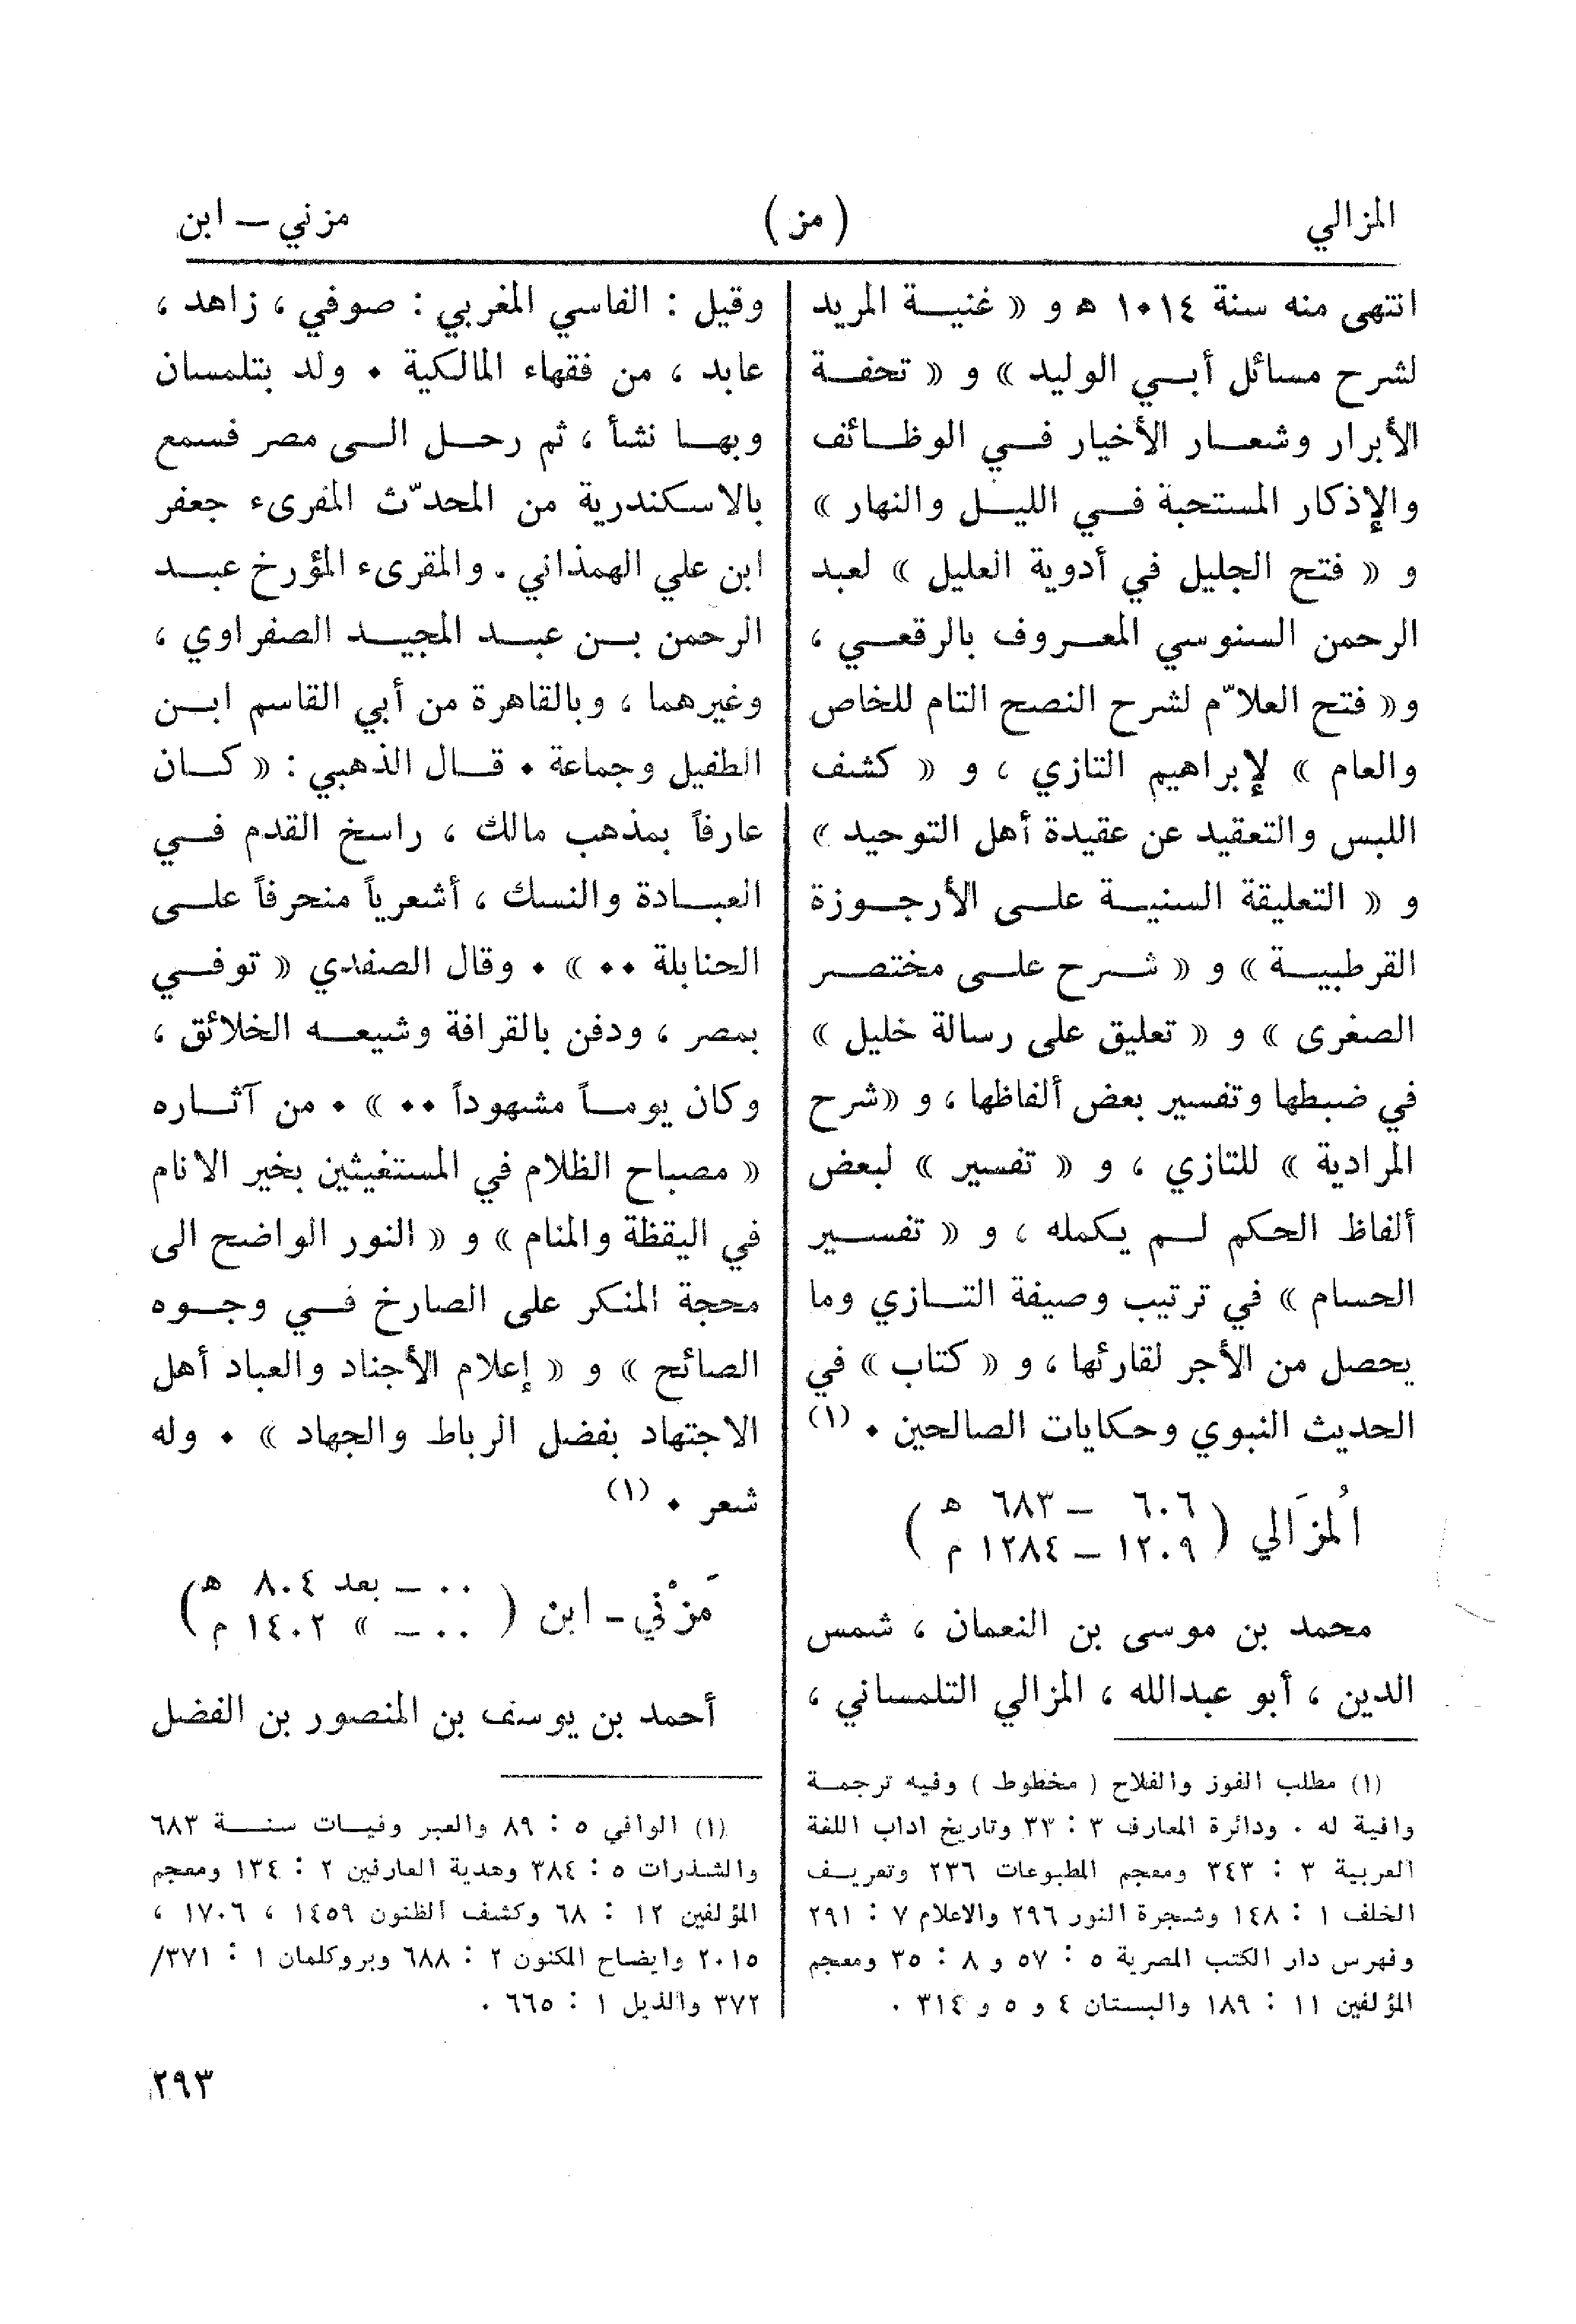 المزالي ( مز ) مزني – ابن
انتهى منه سنة ١٠١٤ هـ و « غنية المريد
لشرح مسائل أبي الوليد » و « تحفة
الأبرار وشعار الأخيار في الوظائف
والإذكار المستحبة في الليل والنهار »
و « فتح الجليل في أدوية العليل » لعبد
الرحمن السنوسي المعروف بالرقعي ،
و« فتح العلاّم لشرح النصح التام للخاص
والعام » لإبراهيم التازي ، و « كشف
اللبس والتعقيد عن عقيدة أهل التوحيد »
و « التعليقة السنية على الأرجوزة
القرطبية » و « شرح على مختصر
الصغرى » و « تعليق على رسالة خليل »
في ضبطها وتفسير بعض ألفاظها ، و «شرح
المرادية » للتازي ، و « تفسير » لبعض
ألفاظ الحكم لم يكمله ، و « تفسير
الحسام » في ترتيب وصيفة التازي وما
يحصل من الأجر لقارئها ، و « كتاب » في
الحديث النبوي وحكايات الصالحين . (١)
المُزَالي ( ٦٠٦ – ٦٨٣ هـ
١٢٠٩ – ١٢٨٤ م )
محمد بن موسى بن النعمان ، شمس
الدين ، أبو عبدالله ، المزالي التلمساني ،
(١) مطلب الفوز والفلاح ( مخطوط ) وفيه ترجمة
وافية له . ودائرة المعارف ٣ : ٣٣ وتاريخ اداب اللغة
العربية ٣ : ٣٤٣ ومعجم المطبوعات ٢٣٦ وتعريف
الخلف ١ : ١٤٨ وشجرة النور ٢٩٦ والاعلام ٧ : ٢٩١
وفهرس دار الكتب المصرية ٥ : ٥٧ و ٨ : ٣٥ ومعجم
المؤلفين ١١ : ١٨٩ والبستان ٤ و ٥ و ٣١٤ .
وقيل : الفاسي المغربي : صوفي ، زاهد ،
عابد ، من فقهاء المالكية . ولد بتلمسان
وبها نشأ ، ثم رحل الى مصر فسمع
بالاسكندرية من المحدّث المقرىء جعفر
ابن علي الهمذاني . والمقرىء المؤرخ عبد
الرحمن بن عبد المجيد الصفراوي ،
وغيرهما ، وبالقاهرة من أبي القاسم ابن
الطفيل وجماعة . قال الذهبي : « كان
عارفاً بمذهب مالك ، راسخ القدم في
العبادة والنسك ، أشعرياً منحرفاً على
الحنابلة .. » . وقال الصفدي « توفي
بمصر ، ودفن بالقرافة وشيعه الخلائق ،
وكان يوماً مشهوداً .. » . من آثاره
« مصباح الظلام في المستغيثين بخير الانام
في اليقظة والمنام » و « النور الواضح الى
محجة المنكر على الصارخ في وجوه
الصائح » و « إعلام الأجناد والعباد أهل
الاجتهاد بفضل الرباط والجهاد » . وله
شعر . (١)
مَزْني - ابن ( ٠٠ – بعد ٨٠٤ هـ
٠٠ – » ١٤٠٢ م )
أحمد بن يوسف بن المنصور بن الفضل
(١) الوافي ٥ : ٨٩ والعبر وفيات سنة ٦٨٣
والشذرات ٥ : ٣٨٤ وهدية العارفين ٢ : ١٣٤ ومعجم
المؤلفين ١٢ : ٦٨ وكشف الظنون ١٤٥٩ ، ١٧٠٦ ،
٢٠١٥ وايضاح المكنون ٢ : ٦٨٨ وبروكلمان ١ : ٣٧١/
٣٧٢ والذيل ١ : ٦٦٥ .
٢٩٣